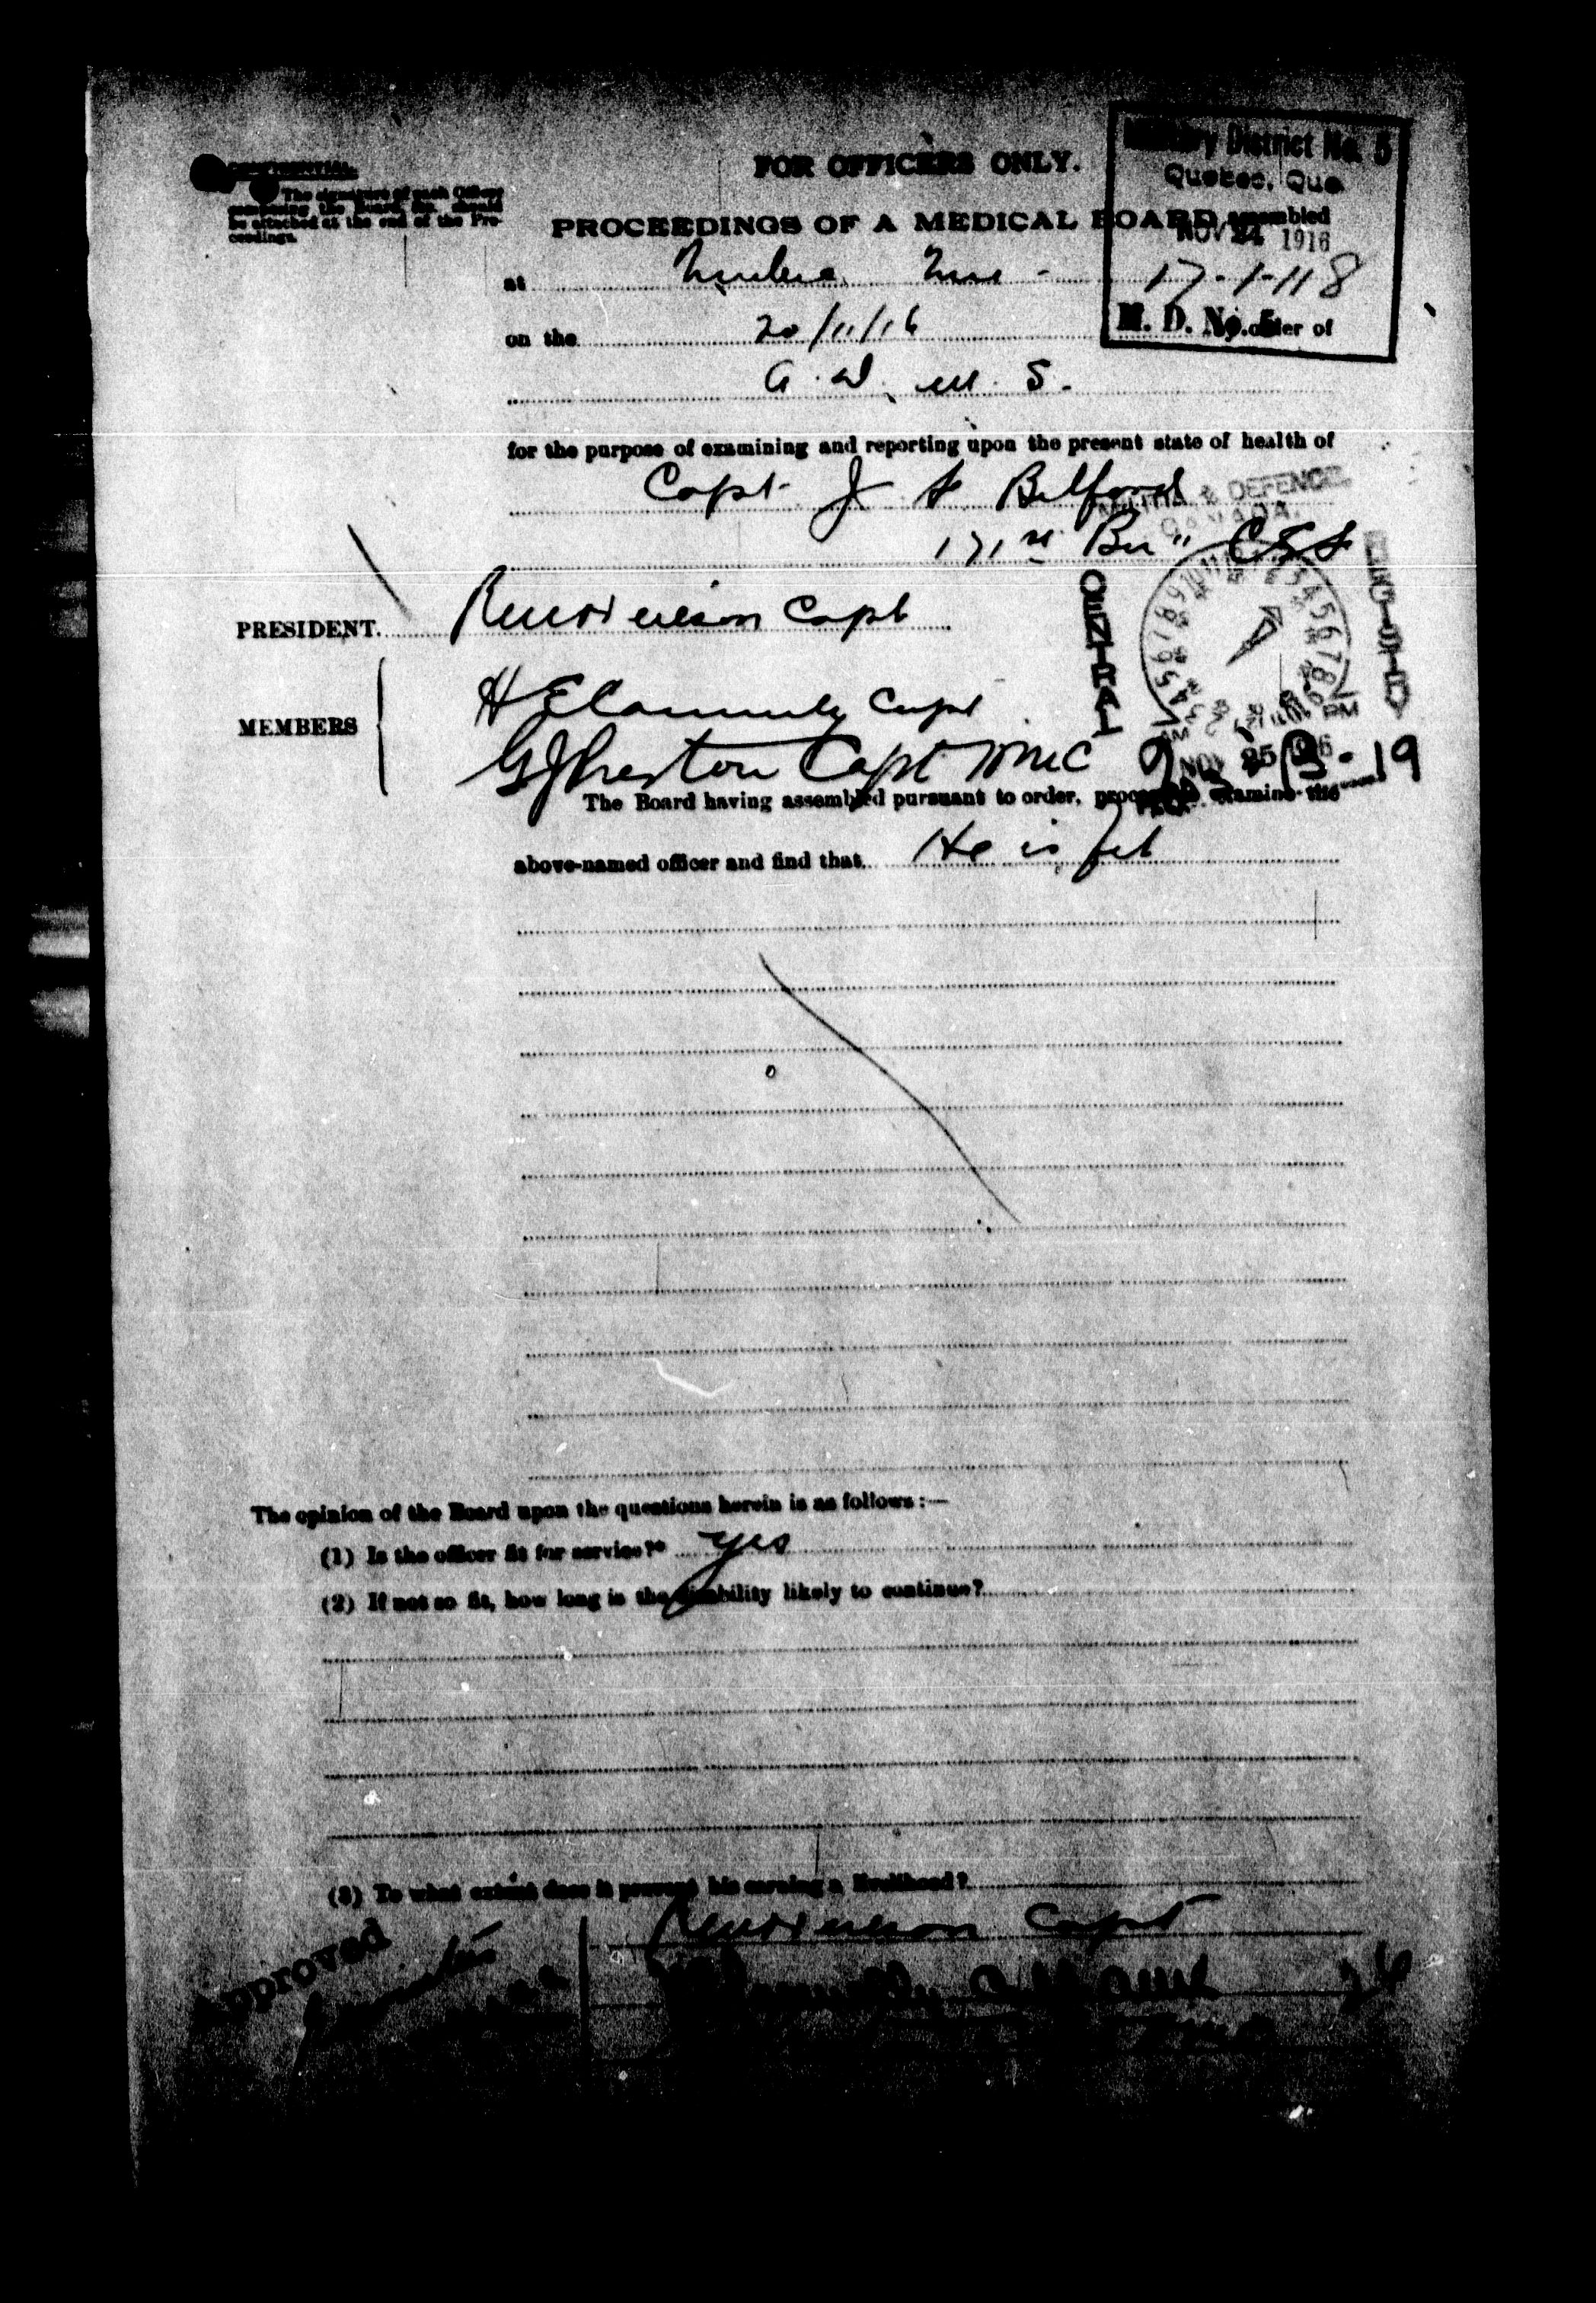 CONFIDENTIAL.
The signature of each Officer
composing the Board, &c., should
be attached at the end of the Pro-
ceedings.
FOR OFFICERS ONLY.
Military District No. 5
Quebec, Que.
NOV 24 1916
17-1-118
M. D. No. 5.
PROCEEDINGS OF A MEDICAL BOARD assembled
at Quebec Que -
on the 20/11/16 order of
A. D. M. S.
for the purpose of examining and reporting upon the present state of health of
Capt. J F Belford
171st Bn" CEF
MILITIA & DEFENCE
CANADA.
CENTRAL
REGISTRY
NOV 25 1916
PRESIDENT. Capt
MEMBERS
Capt
G J Preston Capt AMC
The Board having assembled pursuant to order, proceed to examine the
above-named officer and find that He is fit
The opinion of the Board upon the questions herein is as follows:—
(1) Is the officer fit for service?* yes
(2) If not so fit, how long is the disability likely to continue?
(3) To what extent does it prevent his earning a livelihood?
Capt
Approved